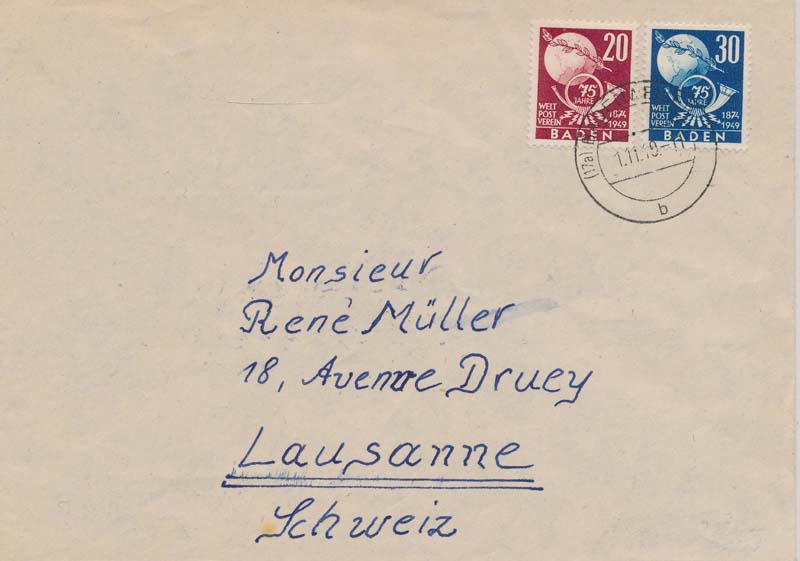 20
75
JAHRE
WELT
POST
VEREIN
1874
1949
BADEN
30
75
JAHRE
WELT
POST
VEREIN
1874
1949
BADEN
(17a)
b
Monsieur
René Müller
18, Avenue Druey
Lausanne
Schweiz